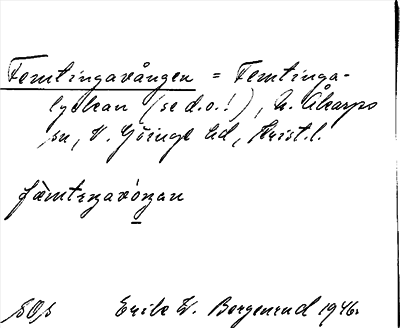 Femtingavången = Femtinga-
lyckan (se d.o.!), N. Åkarps
sn, V. Göinge hd, Krist. l.
fæmtıŋavóŋan
Erik W. Bergenrud 1946.